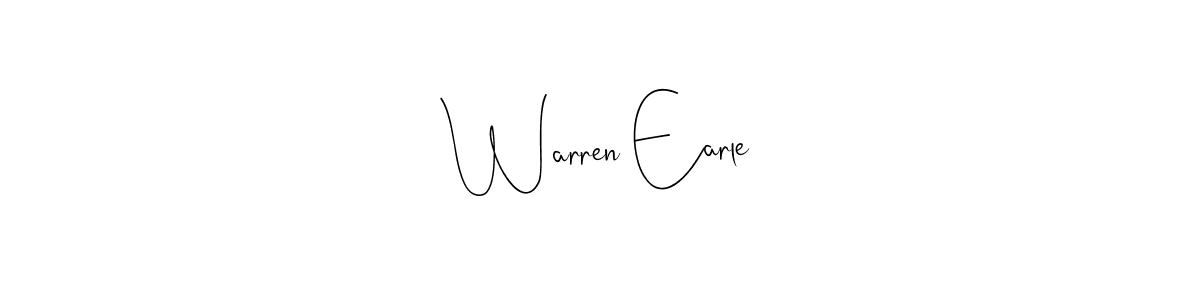 Warren Earle